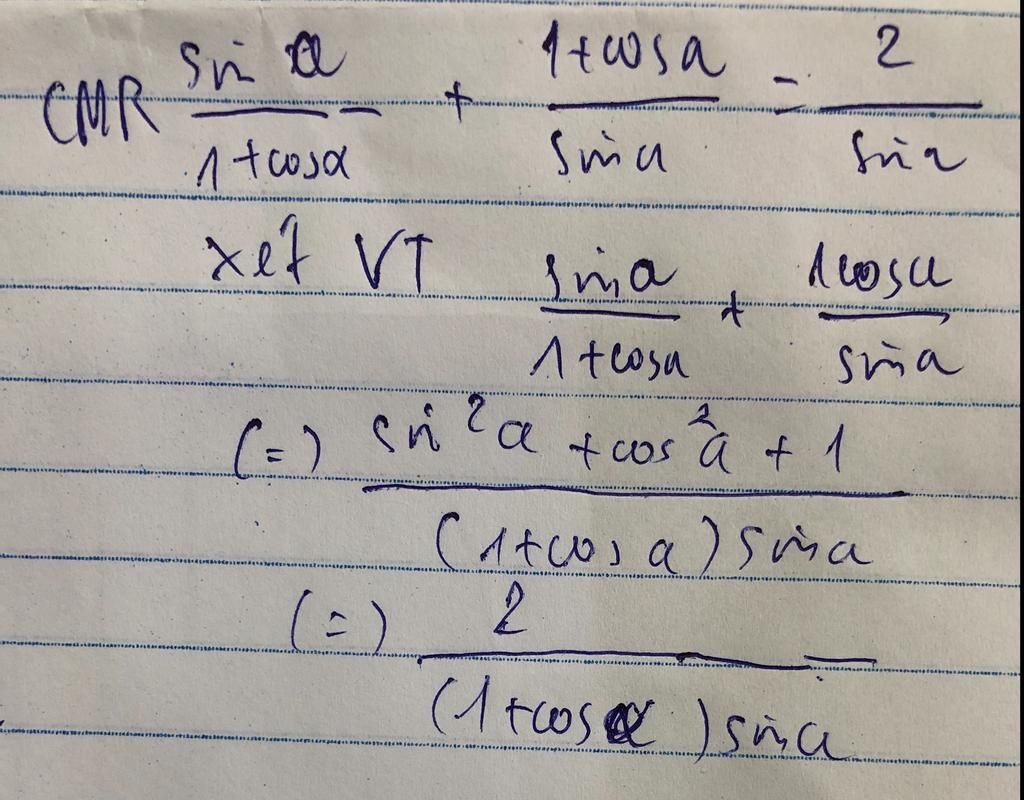 CMR sin a / 1+cosa + 1+cosa / sina = 2 / sina
xet VT sina / 1+cosa + 1cosa / sina
(=) sin²a + cos²a + 1 / (1+cos a) sina
(=) 2 / (1+cosa) sina